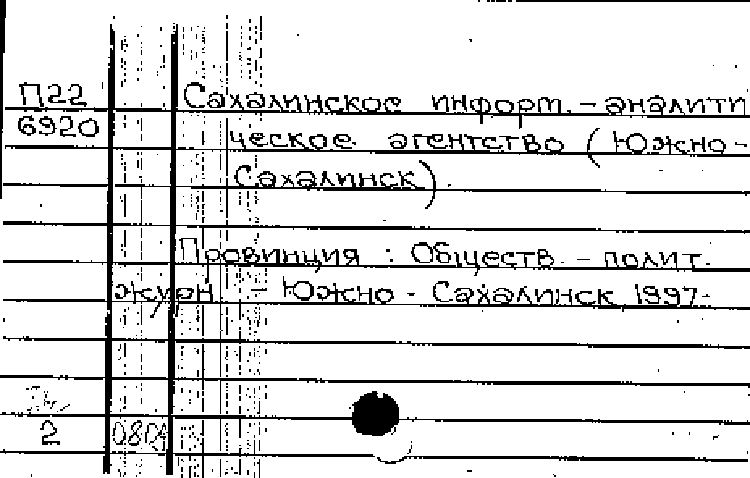 П22 Сахалинское информ.-аналити
6920 ческое агентство (Южно-
Сахалинск)
Провинция : Обществ. - полит.
журн. - Южно - Сахалинск, 1997-
2